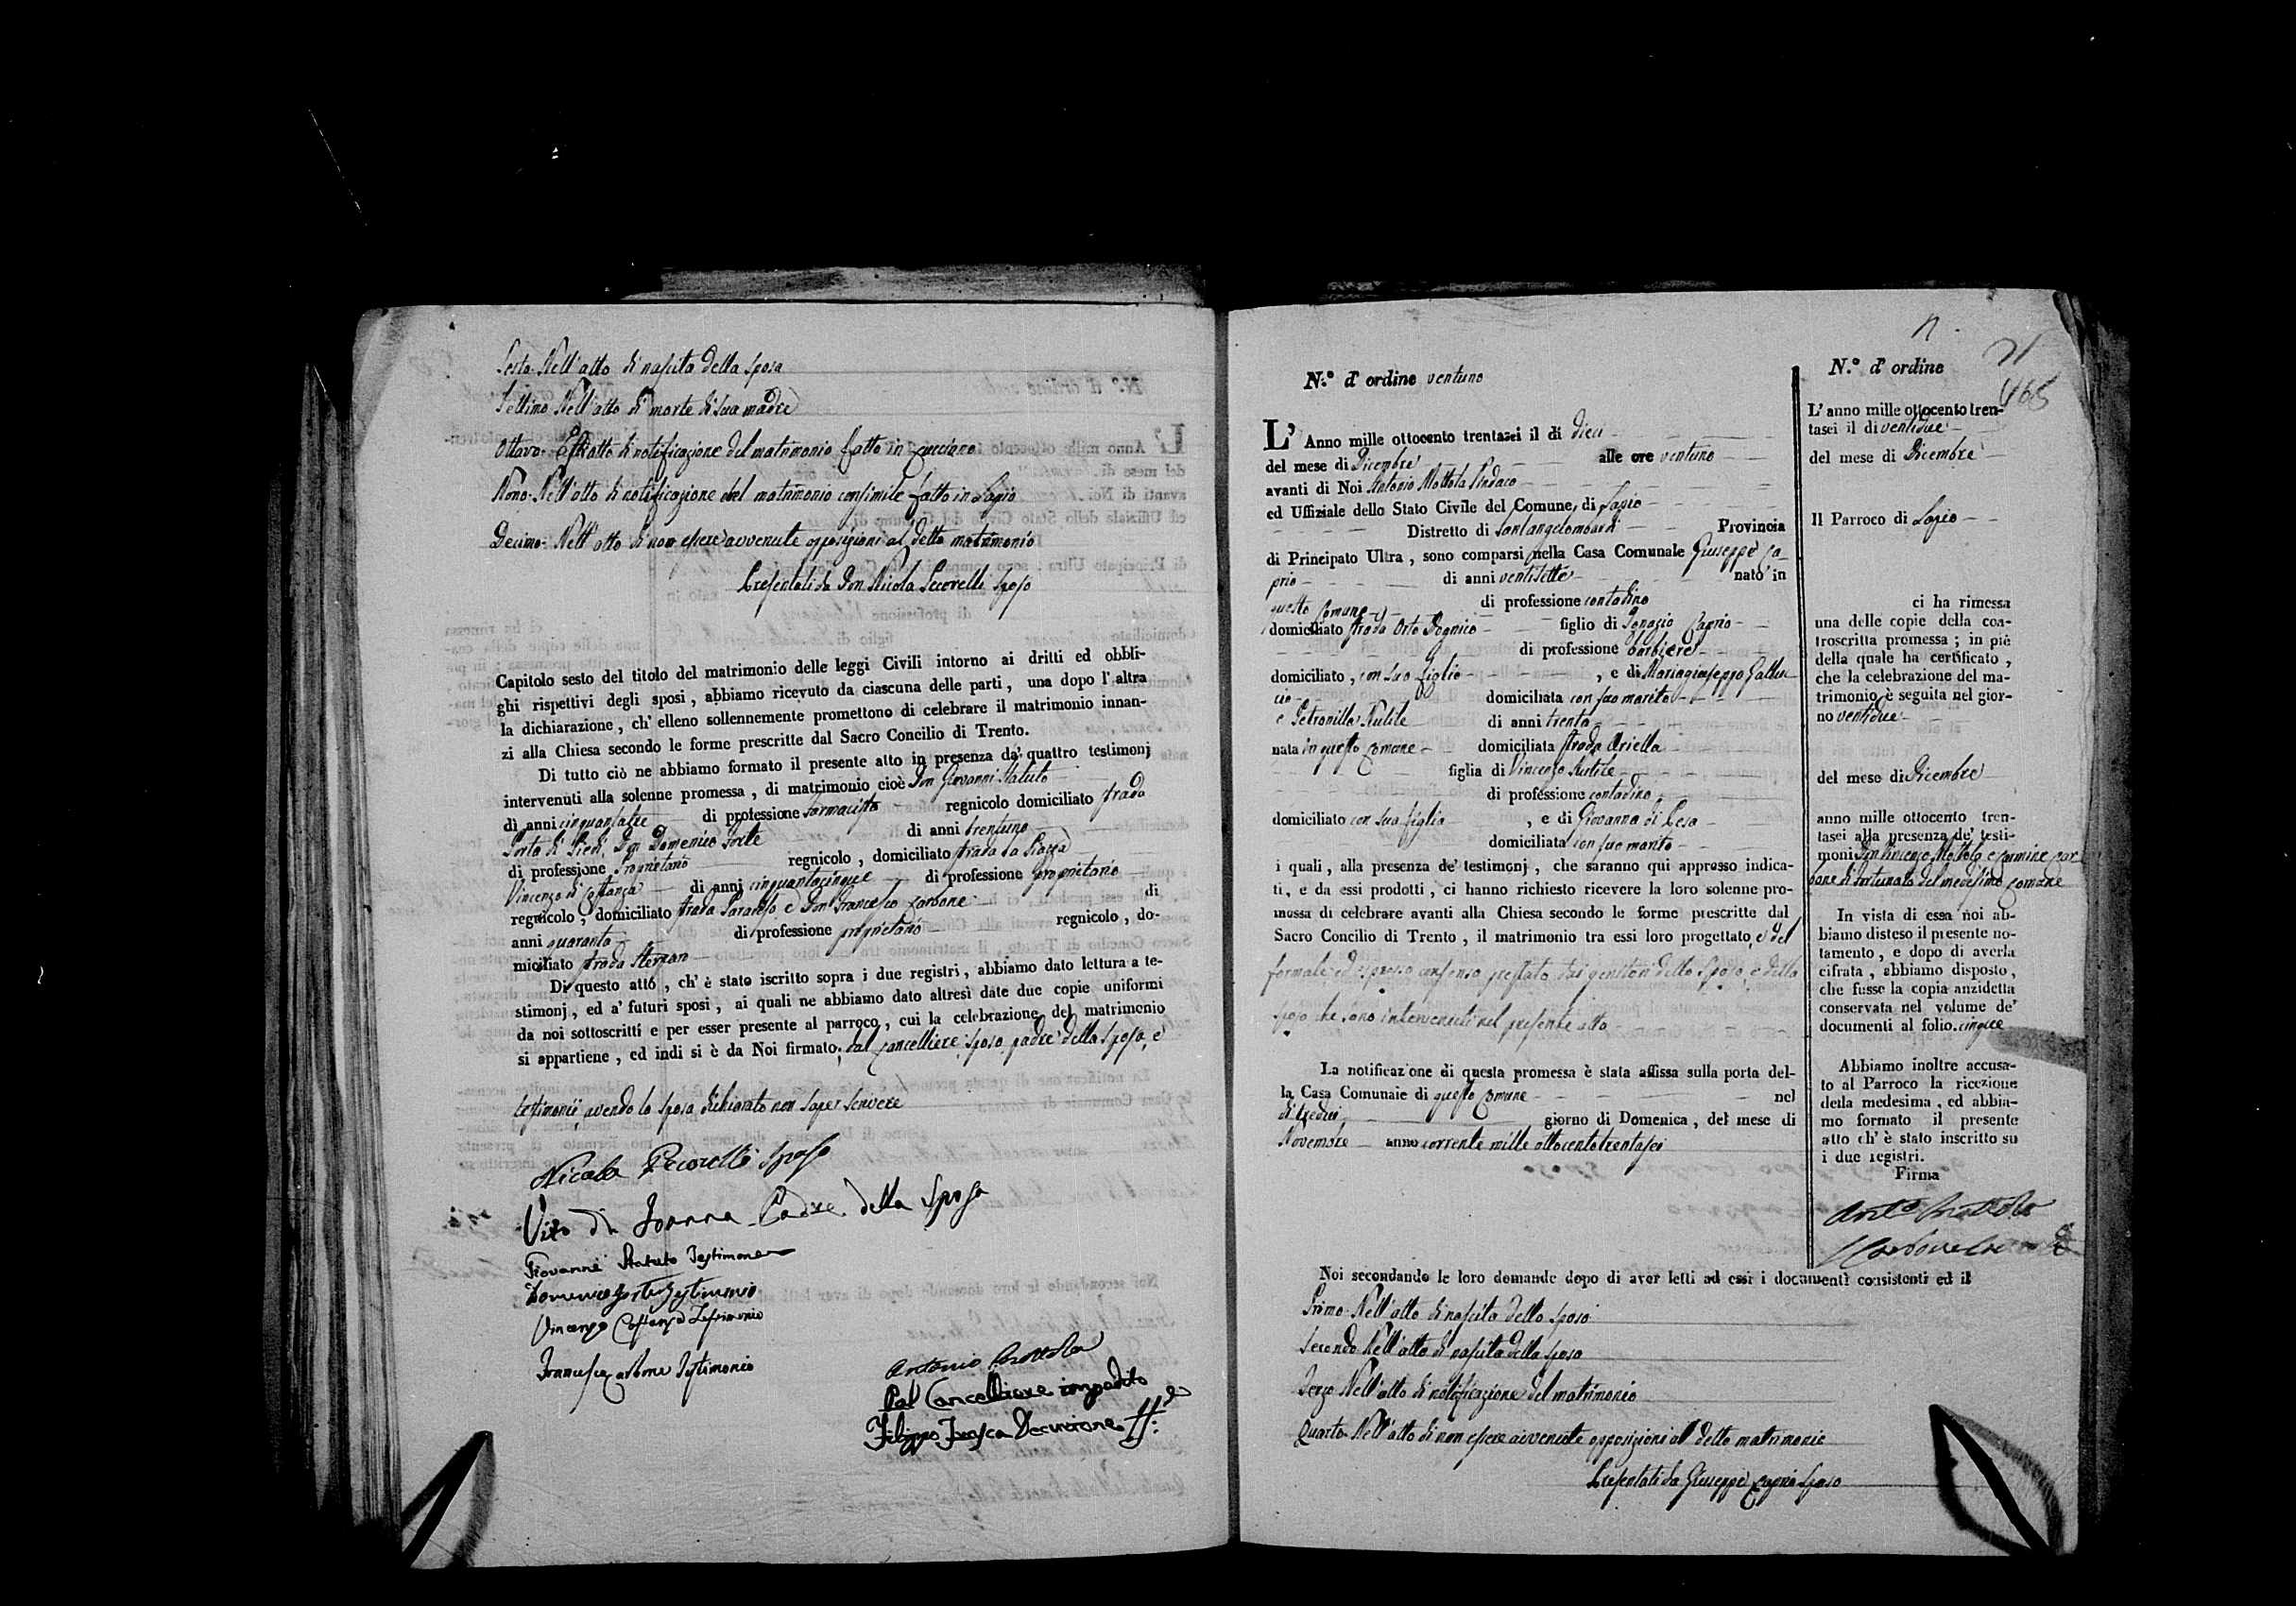 Sesto Nell'atto di nascita della sposa
Settimo Nell'atto di morte di sua madre
Ottavo Estratto di notificazione del matrimonio fatto in
Nono Nell'atto di notificazione del matrimonio consimile fatto in Lapio
Decimo Nell'atto di non essere avvenute opposizioni al detto matrimonio
Presentati da Don Nicola Pecorelli sposo
Capitolo sesto del titolo del matrimonio delle leggi Civili intorno ai dritti ed obbli-
ghi rispettivi degli sposi, abbiamo ricevuto da ciascuna delle parti, una dopo l'altra
la dichiarazione, ch' elleno sollennemente promettono di celebrare il matrimonio innan-
zi alla Chiesa secondo le forme prescritte dal Sacro Concilio di Trento.
Di tutto ciò ne abbiamo formato il presente atto in presenza da' quattro testimonj
intervenuti alla solenne promessa, di matrimonio cioè Don Giovanni Statuto
di anni cinquantatre di professione farmacista regnicolo domiciliato strada
Porta di Piedi, Don Domenico Forte di anni trentuno
di professione Proprietario regnicolo, domiciliato strada la Piazza
Vincenzo di Costanza di anni cinquantacinque di professione proprietario
regnicolo, domiciliato strada Paradiso e Don Francesco Carbone di
anni quaranta di professione proprietario regnicolo, do-
miciliato strada
Di questo atto, ch' è stato iscritto sopra i due registri, abbiamo dato lettura a te-
stimonj, ed a' futuri sposi, ai quali ne abbiamo dato altresì date due copie uniformi
da noi sottoscritti e per esser presente al parroco, cui la celebrazione del matrimonio
si appartiene, ed indi si è da Noi firmato, dal Cancelliere, sposo, padre della sposa, e
testimonii avendo la sposa dichiarato non saper scrivere
Nicola Pecorelli sposo
Vito di Joanna Padre della Sposa
Giovanni Statuto Testimone
Domenico Forte Testimonio
Vincenzo Costanza Testimonio
Francesco Carbone Testimonio
Antonio Mottola
Pel Cancelliere impedito
Filippo Decurione ff:
N.° d' ordine ventuno
L' Anno mille ottocento trentasei il di dieci
del mese di Dicembre alle ore ventuno
avanti di Noi Antonio Mottola Sindaco
ed Uffiziale dello Stato Civile del Comune, di Lapio
Distretto di Santangelombardi Provincia
di Principato Ultra, sono comparsi nella Casa Comunale Giuseppe Ca-
prio di anni ventisette nato in
questo Comune di professione contadino
domiciliato strada Orto Dognico figlio di Ignazio Caprio
di professione barbiere
domiciliato, con suo figlio, e di Mariagiuseppa Galluc-
cio domiciliata con suo marito
e Petronilla Rutile di anni trenta
nata in questo Comune domiciliata strada Ariella
figlia di Vincenzo Rutile
di professione contadino
domiciliato con sua figlia, e di Giovanna di Leso
domiciliata con suo marito
i quali, alla presenza de' testimonj, che saranno qui appresso indica-
ti, e da essi prodotti, ci hanno richiesto ricevere la loro solenne pro-
messa di celebrare avanti alla Chiesa secondo le forme prescritte dal
Sacro Concilio di Trento, il matrimonio tra essi loro progettato, e del
formale ed espresso consenso prestato dai genitori dello Sposo, e della
sposa che sono intervenuti nel presente atto
La notificazione di questa promessa è stata affissa sulla porta del-
la Casa Comunale di questo Comune nel
di tredici giorno di Domenica, del mese di
Novembre anno corrente mille ottocentotrentasei
Noi secondando le loro domande dopo di aver letti ad essi i documenti consistenti ed il
Primo Nell'atto di nascita dello sposo
Secondo Nell'atto di nascita della sposa
Terzo Nell'atto di notificazione del matrimonio
Quarto Nell'atto di non essere avvenute opposizioni al detto matrimonio
Presentati da Giuseppe Caprio sposo
21
465
N.° d' ordine
L' anno mille ottocento tren-
tasei il di ventidue
del mese di Dicembre
Il Parroco di Lapio
ci ha rimessa
una delle copie della con-
troscritta promessa; in piè
della quale ha certificato,
che la celebrazione del ma-
trimonio è seguita nel gior-
no ventidue
del mese di Dicembre
anno mille ottocento tren-
tasei alla presenza de' testi-
moni Don Vincenzo Mottola e Carmine Car-
bone di Fortunato del medesimo Comune
In vista di essa noi ab-
biamo disteso il presente no-
tamento, e dopo di averla
cifrata, abbiamo disposto,
che fusse la copia anzidetta
conservata nel volume de'
documenti al folio. cinque
Abbiamo inoltre accusa-
to al Parroco la ricezione
della medesima, ed abbia-
mo formato il presente
atto ch' è stato inscritto su
i due registri.
Firma
Ant.o Mottola